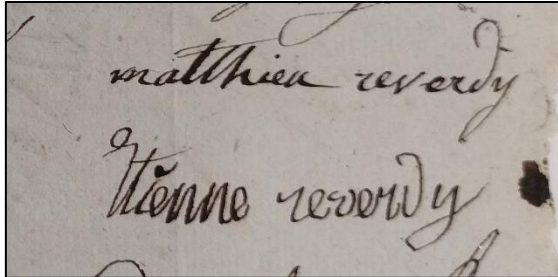 matthieu reverdy
Etienne reverdy